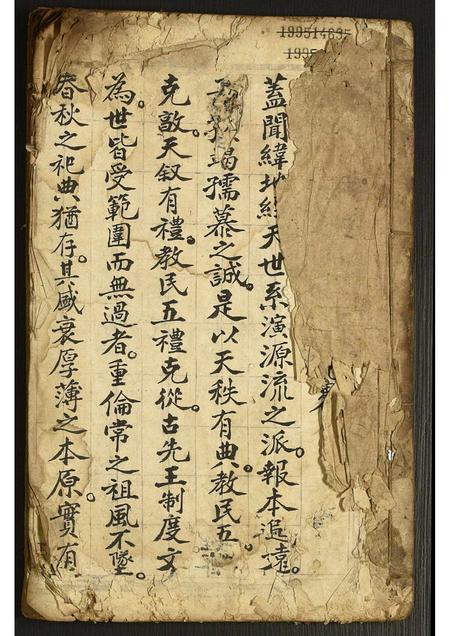 199514635
1995
蓋聞緯地經天世系演源流之派。報本追遠。
竭孺慕之誠。是以天秩有典。教民五。
克敦。天叙有禮。教民五禮克從。古先王制度文
為。世皆受範圍而無過者。重倫常之祖風不墜。
春秋之祀典猶存。其盛衰厚薄之本原。實有